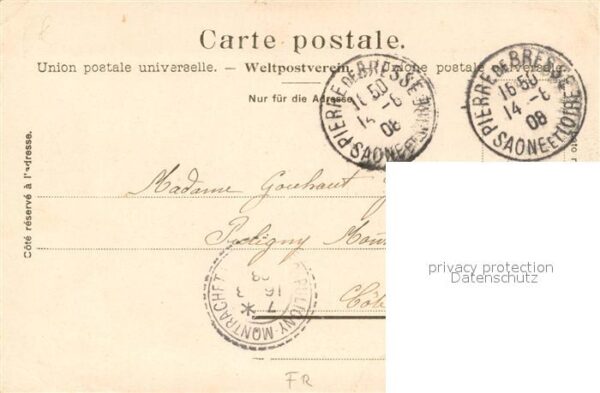 Carte postale.
Union postale universelle. — Weltpostverein. — Unione postale universale.
Nur für die Adresse.
Côté réservé à l'adresse.
PIERRE DE BRESSE
16 50
14 -6
08
SAONE ET LOIRE
PIERRE DE BRESSE
16 50
14 -6
08
SAONE ET LOIRE
Madame Gouhaut
Puligny Mon
Côte
PULIGNY-MONTRACHET
7
16
08
FR
privacy protection
Datenschutz